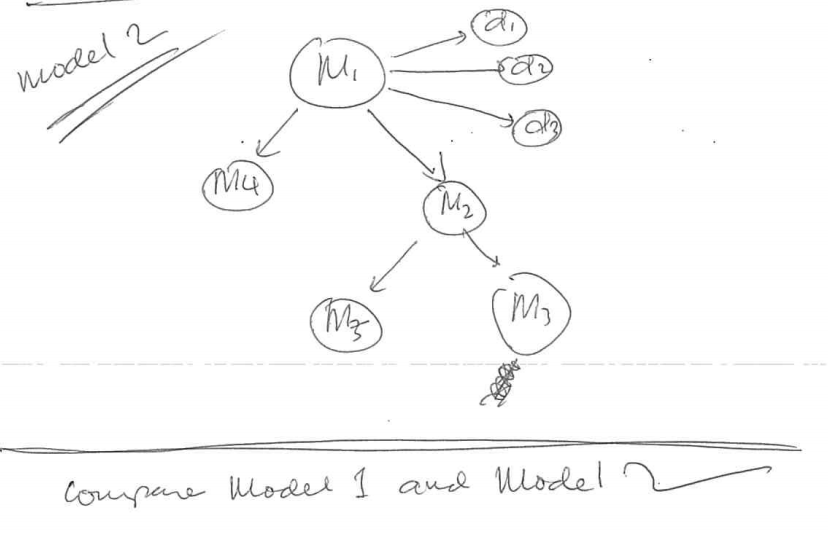 Model 2
M1
d1
d2
d3
M4
M2
M5
M3
Compare Model 1 and Model 2